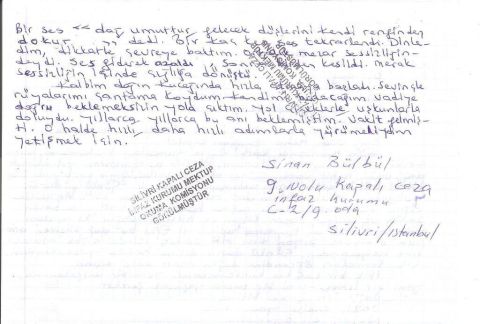 Bir ses << dağ umuttur gelecek düşlerini kendi renginden
dokur >> dedi. Bir kaç kez ses tekrarlandı. Dinle-
dim, dikkatle çevreye baktım. mezar sessizliğin-
deydi. Ses giderek azaldı sonra kesildi. merak
sessizliğin içinde çığlığa dönüştü.
Kalbim dağ hızla başladı. Sevinçle
rüyalarımı çantama koydum kendimi vadiye
doğru beklemeksizin yola saldım.
doluydu. yıllarca yıllarca bu anı beklemiştim. Vakit gelmiş-
ti. O halde hızlı, daha hızlı adımlarla yürümeliydim
yetişmek için.
Sinan Bülbül
9 Nolu Kapalı Ceza
infaz kurumu
C-2/9. oda
Silivri/istanbul
SİLİVRİ KAPALI CEZA
İNFAZ KURUMU MEKTUP
OKUMA KOMİSYONU
GÖRÜLMÜŞTÜR